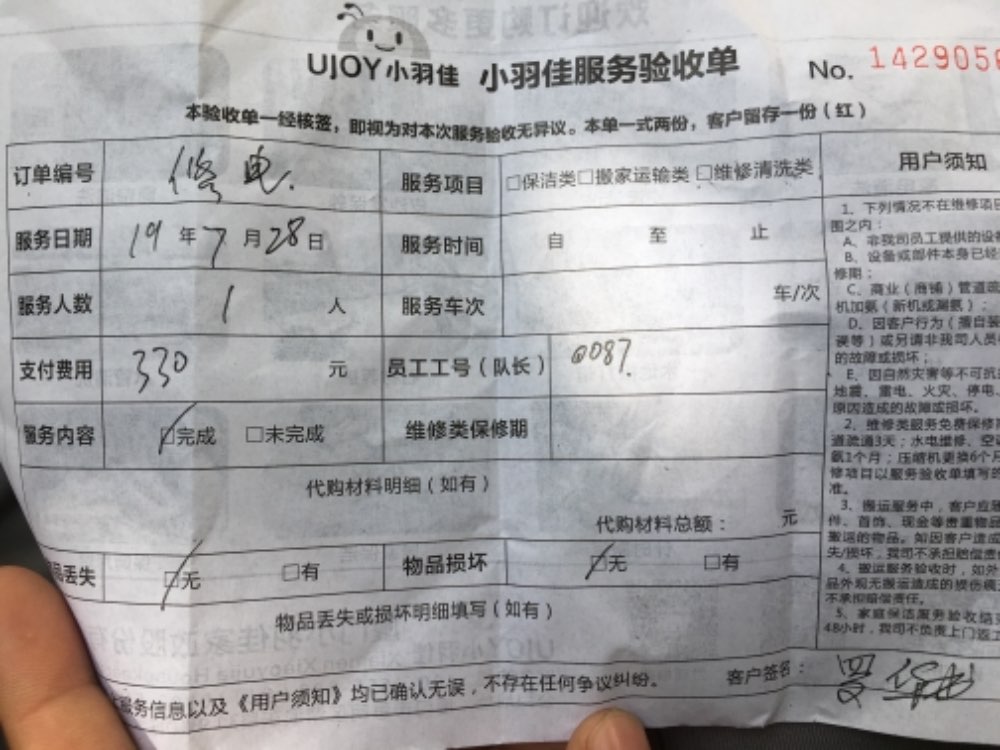 UJOY小羽佳 小羽佳服务验收单 No. 1429056
本验收单一经核签，即视为对本次服务验收无异议。本单一式两份，客户留存一份（红）
订单编号 修电. 服务项目 □保洁类□搬家运输类 □维修清洗类
服务日期 19 年 7 月 28 日 服务时间 自 至 止
服务人数 1 人 服务车次 车/次
支付费用 330 元 员工工号（队长） 0087.
服务内容 □完成 □未完成 维修类保修期
代购材料明细（如有）
代购材料总额： 元
丢失 □无 □有 物品损坏 □无 □有
物品丢失或损坏明细填写（如有）
服务信息以及《用户须知》均已确认无误，不存在任何争议纠纷。 客户签名：
用户须知
1、下列情况不在维修项目
围之内：
A、非我司员工提供的设
B、设备或部件本身已经
修期；
C、商业（商铺）管道疏
机加氨（新机或漏氨）；
D、因客户行为（擅自装
误等）或另请非我司人员
的故障或损坏；
E、因自然灾害等不可抗
地震、雷电、火灾、停电
原因造成的故障或损坏。
2、维修类服务免费保修
道疏通3天；水电维修、空
氨1个月；压缩机更换6个月
修项目以服务验收单填写的
准。
3、搬运服务中，客户应
件、首饰、现金等贵重物品
搬运的物品。如因客户造成
失/损坏，我司不承担赔偿责
4、搬运服务验收时，如外
品外观无搬运造成的损伤痕
不承担赔偿责任。
5、家庭保洁服务验收结
48小时，我司不负责上门返工